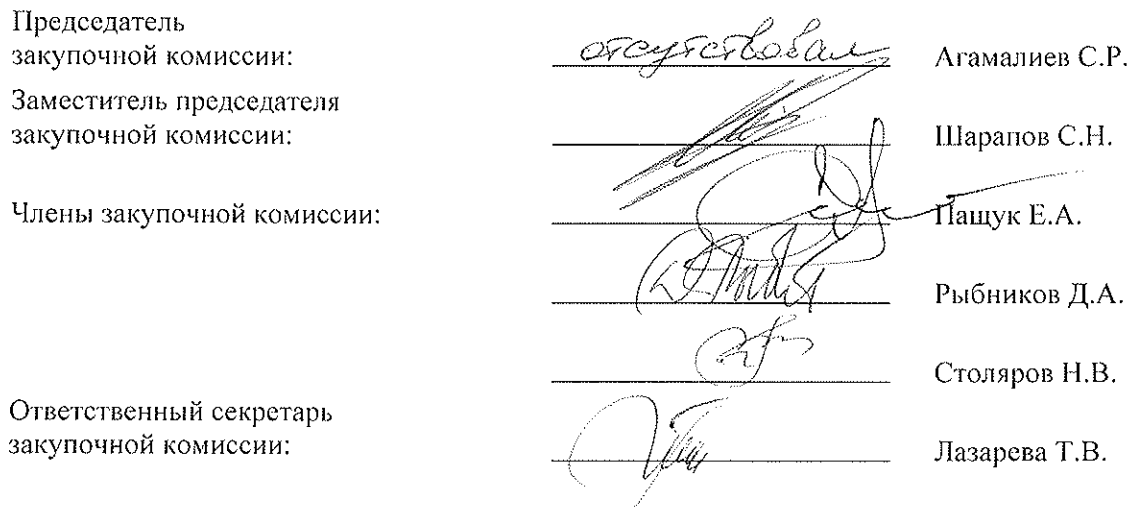 Председатель
закупочной комиссии:
отсутствовал Агамалиев С.Р.
Заместитель председателя
закупочной комиссии:
Шарапов С.Н.
Члены закупочной комиссии:
Пащук Е.А.
Рыбников Д.А.
Столяров Н.В.
Ответственный секретарь
закупочной комиссии:
Лазарева Т.В.